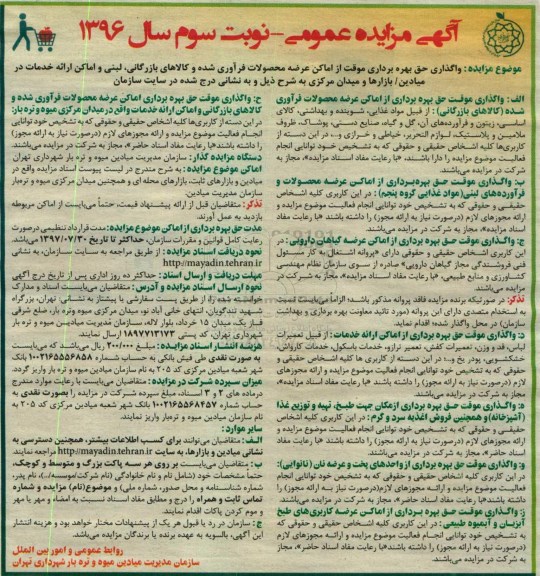 آگهی مزایده عمومی-نوبت سوم سال ۱۳۹۶
موضوع مزایده : واگذاری حق بهره برداری موقت از اماکن عرضه محصولات فرآوری شده و کالاهای بازرگانی، لبنی و اماکن ارائه خدمات در
میادین/ بازارها و میدان مرکزی به شرح ذیل و به نشانی درج شده در سایت سازمان
الف : واگذاری موقت حق بهره برداری از اماکن عرضه محصولات فرآوری
شده (کالاهای بازرگانی) : از قبیل مواد غذایی، شوینده و بهداشتی، کالای
اساسی، زیتون و فرآورده‌های آن، گل و گیاه، صنایع دستی، پوشاک، ظروف
ملامین و پلاستیک، لوازم التحریر، خیاطی و خرازی و... در این دسته از
کاربری‌ها کلیه اشخاص حقیقی و حقوقی که به تشخیص خود توانایی انجام
فعالیت موضوع مزایده را دارا باشند، «با رعایت مفاد اسناد مزایده»، مجاز به
شرکت در مزایده می‌باشند.
ب: واگذاری موقت حق بهره‌برداری از اماکن عرضه محصولات و
فرآورده‌های لبنی(مواد غذایی گروه پنجم) : در این کاربری کلیه اشخاص
حقیقی و حقوقی که به تشخیص خود توانایی انجام فعالیت موضوع مزایده و
ارائه مجوزهای لازم (درصورت نیاز به ارائه مجوز) را داشته باشند «با رعایت مفاد
اسناد مزایده»، مجاز به شرکت در مزایده می‌باشند.
ج: واگذاری موقت حق بهره برداری از اماکن عرضه گیاهان دارویی : در
این کاربری اشخاص حقیقی و حقوقی دارای «پروانه اشتغال به کار مسئول
فنی فروشندگی مجاز گیاهان دارویی» صادره از سوی سازمان نظام مهندسی
کشاورزی و منابع طبیعی، «با رعایت مفاد اسناد مزایده»، مجاز به شرکت در
مزایده می‌باشند.
تذکر: در صورتیکه برنده مزایده فاقد پروانه مذکور باشد؛ الزاماً می‌بایست نسبت
به استخدام متصدی دارای این پروانه (مورد تائید معاونت بهره برداری و بهداشت
سازمان) در محل واگذار شده؛ اقدام نماید.
د: واگذاری موقت حق بهره برداری از اماکن ارائه خدمات : از قبیل تعمیرات
لباس، قند و وزن، تعمیرات کفش، تعمیر ترازو، خدمات باسکول، خدمات کارواش،
خشکشویی، پودر یخ و... در این دسته از کاربری ها کلیه اشخاص حقیقی و
حقوقی که به تشخیص خود توانایی انجام فعالیت موضوع مزایده و ارائه مجوزهای
لازم (درصورت نیاز به ارائه مجوز) را داشته باشند، «با رعایت مفاد اسناد مزایده»،
مجاز به شرکت در مزایده می‌باشند.
ه: واگذاری موقت حق بهره برداری ازمکان جهت طبخ، تهیه و توزیع غذا
(آشپزخانه) و همچنین فروش اغذیه سرد و گرم : در این کاربری کلیه اشخاص
حقیقی و حقوقی که به تشخیص خود توانایی انجام فعالیت موضوع مزایده و ارائه
مجوزهای لازم (درصورت نیاز به ارائه مجوز) را داشته باشند «با رعایت مفاد
اسناد حاضر»، مجاز به شرکت در مزایده می‌باشند.
و: واگذاری موقت حق بهره برداری از واحدهای پخت و عرضه نان (نانوایی):
در این کاربری کلیه اشخاص حقیقی و حقوقی که به تشخیص خود توانایی انجام
فعالیت موضوع مزایده و ارائه مجوزهای لازم(درصورت نیاز به ارائه مجوز) را
داشته باشند«با رعایت مفاد اسناد حاضر»، مجاز به شرکت در مزایده می‌باشند.
ز: واگذاری موقت حق بهره برداری از اماکن عرضه کاربری‌های طبخ
آبزیان و آبمیوه طبیعی : در این کاربری کلیه اشخاص حقیقی و حقوقی که
به تشخیص خود توانایی انجام فعالیت موضوع مزایده و ارائه مجوزهای لازم
(درصورت نیاز به ارائه مجوز) را داشته باشند«با رعایت مفاد اسناد حاضر»، مجاز
به شرکت در مزایده می‌باشند.
ح: واگذاری موقت حق بهره برداری اماکن عرضه محصولات فرآوری شده و
کالاهای بازرگانی واماکن ارائه خدمات واقع در میدان مرکزی میوه و تره بار:
در این دسته از کاربری‌ها کلیه اشخاص حقیقی و حقوقی که به تشخیص خود توانایی
انجام فعالیت موضوع مزایده و ارائه مجوزهای لازم (درصورت نیاز به ارائه مجوز)
را داشته باشند«با رعایت مفاد اسناد حاضر»، مجاز به شرکت در مزایده می‌باشند.
دستگاه مزایده گذار: سازمان مدیریت میادین میوه و تره بار شهرداری تهران
اماکن موضوع مزایده : به شرح مندرج در لیست پیوست اسناد مزایده واقع در
میادین و بازارهای ثابت، بازارهای محله ای و همچنین میدان مرکزی میوه و تره‌بار
سازمان مدیریت میادین.
تذکر: متقاضیان قبل از ارائه پیشنهاد قیمت، حتماً می‌بایست از اماکن مربوطه
بازدید به عمل آورند.
مدت حق بهره برداری از اماکن موضوع مزایده: مدت قرارداد تنظیمی درصورت
رعایت کامل قوانین و مقررات سازمان، حداکثر تا تاریخ ۱۳۹۷/۰۷/۳۰ می‌باشد.
نحوه دریافت اسناد مزایده : از طریق مراجعه به سایت سازمان، به نشانی
http://mayadin.tehran.ir
مهلت دریافت و ارسال اسناد : حداکثر ده روز اداری پس از تاریخ درج آگهی
نحوه ارسال اسناد مزایده و آدرس : متقاضیان می‌بایست اسناد و مدارک
خواسته شده را از طریق پست سفارشی یا پیشتاز به نشانی تهران، بزرگراه
شهید تندگویان، انتهای خانی آباد نو، میدان مرکزی میوه و تره بار، ضلع شرقی
فاز یک، میدان ۱۵ خرداد، بلوار لاله، سازمان مدیریت میادین میوه و تره بار
شهرداری تهران، کد پستی ۱۸۹۷۷۱۳۱۷۳ ارسال نمایند.
هزینه انتشار اسناد مزایده : مبلغ ۲۰۰/۰۰۰ ریال می‌باشد که می‌بایست
به صورت نقدی طی فیش بانکی به حساب شماره ۱۰۰۲۱۶۵۵۵۶۸۵۸ بانک
شهر شعبه میادین مرکزی کد ۲۰۵ به نام سازمان میادین میوه و تره بار واریز گردد.
میزان سپرده شرکت در مزایده : متقاضیان می‌بایست با رعایت موارد مندرج
درماده های ۲ و ۳ اسناد، مبلغ سپرده شرکت در مزایده را بصورت نقدی به
حساب شماره ۱۰۰۲۱۶۵۵۶۸۴۵۷ بانک شهر شعبه میادین مرکزی کد ۲۰۵ به
نام سازمان میادین میوه و تره‌بار واریز نمایند.
سایر موارد :
الف: متقاضیان می‌توانند برای کسب اطلاعات بیشتر، همچنین دسترسی به
نشانی میادین و بازارها، به سایت http://mayadin.tehran.ir مراجعه نمایند.
ب : متقاضیان می‌بایست بر روی هر سه پاکت بزرگ و متوسط و کوچک،
حتماً مشخصات خود (شامل نام و نام خانوادگی (نام شرکت/موسسه/..)، نام پدر،
شماره شناسنامه و محل صدور، شماره ملی) و موضوع(نام) مزایده و شماره
تماس ثابت و همراه را درج و مطابق مفاد اسناد نسبت به امضاء و مهر یا مهر
و موم کردن پاکات اقدام نمایند.
ج: سازمان در رد یا قبول هر یک از پیشنهادات مختار خواهد بود و هزینه انتشار
این آگهی، بالسویه به عهده برنده یا برندگان مزایده می‌باشد.
روابط عمومی و امور بین الملل
سازمان مدیریت میادین میوه و تره بار شهرداری تهران